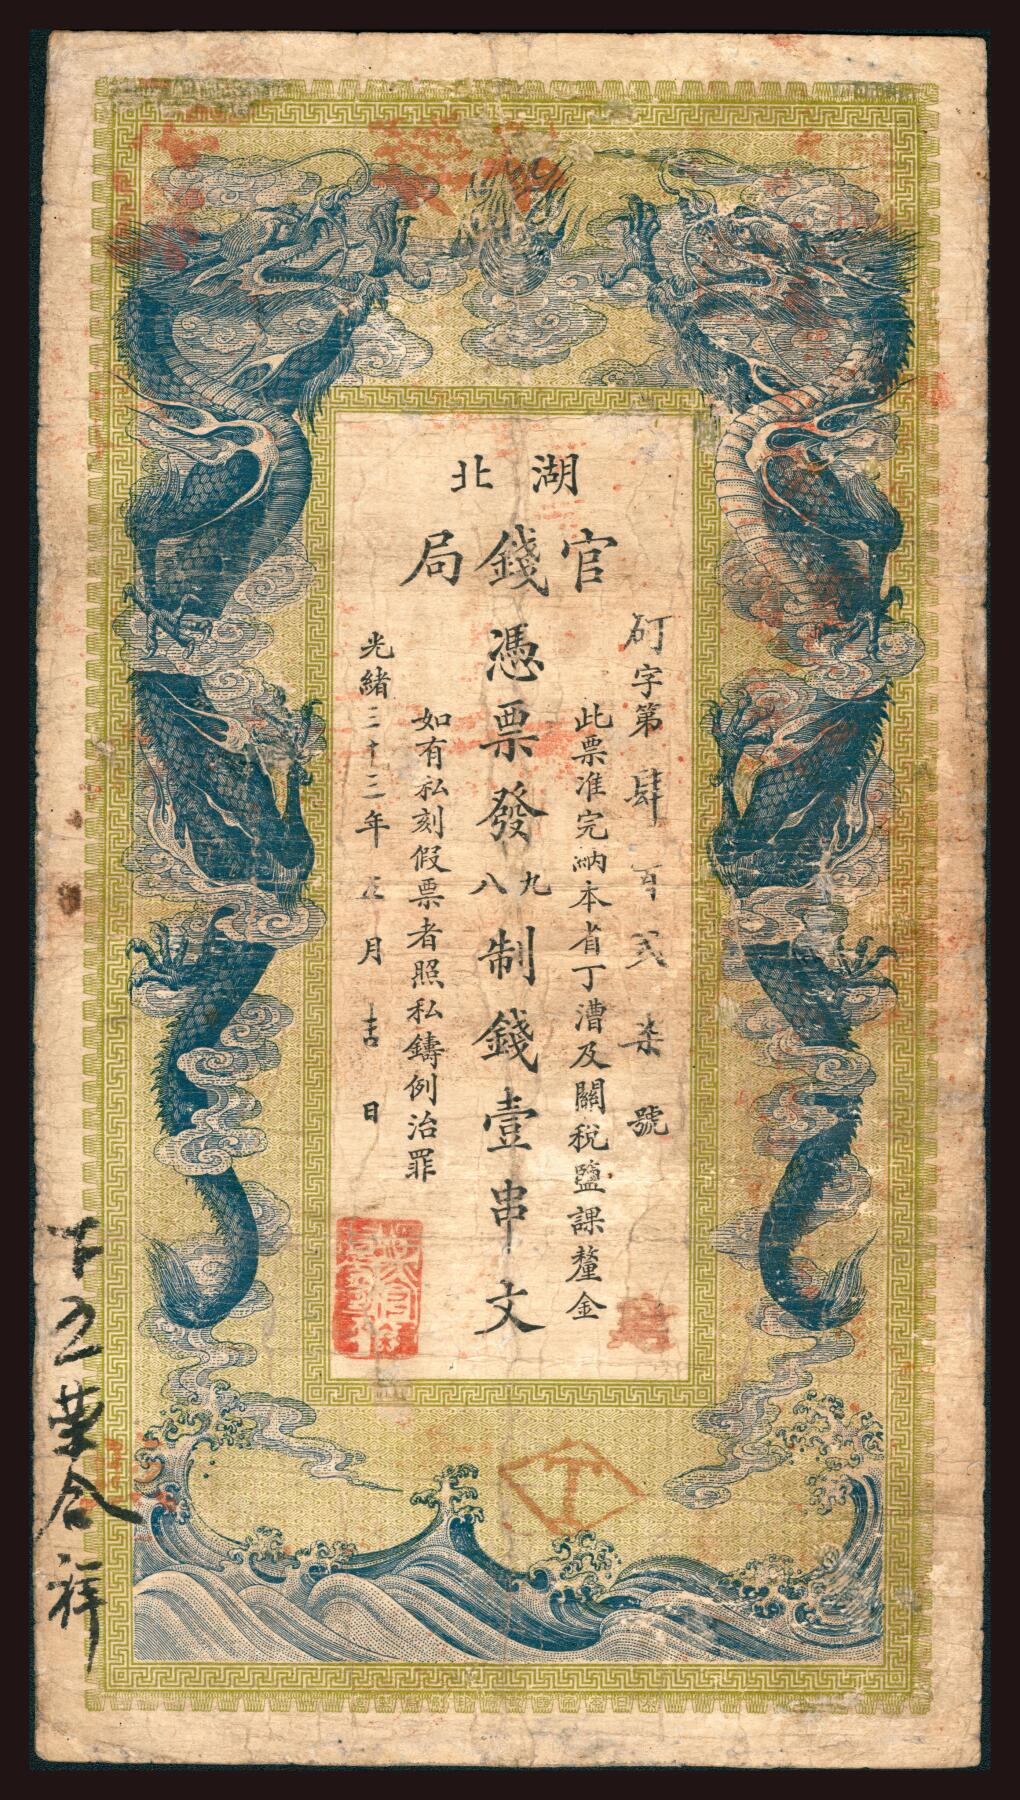 湖北
官錢局
字第肆百貳柒號
此票准完納本省丁漕及關稅鹽課釐金
憑票發九八制錢壹串文
如有私刻假票者照私鑄例治罪
光緒三十三年 月吉日
榮合祥
T